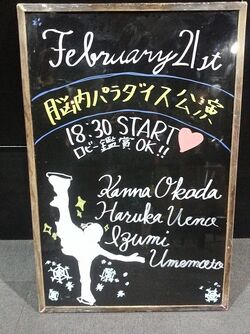 February 21st
脳内パラダイス公演
18:30 START
ロビー鑑賞OK!!
Kanna Okada
Haruka Ueno
Izumi
Umemoto